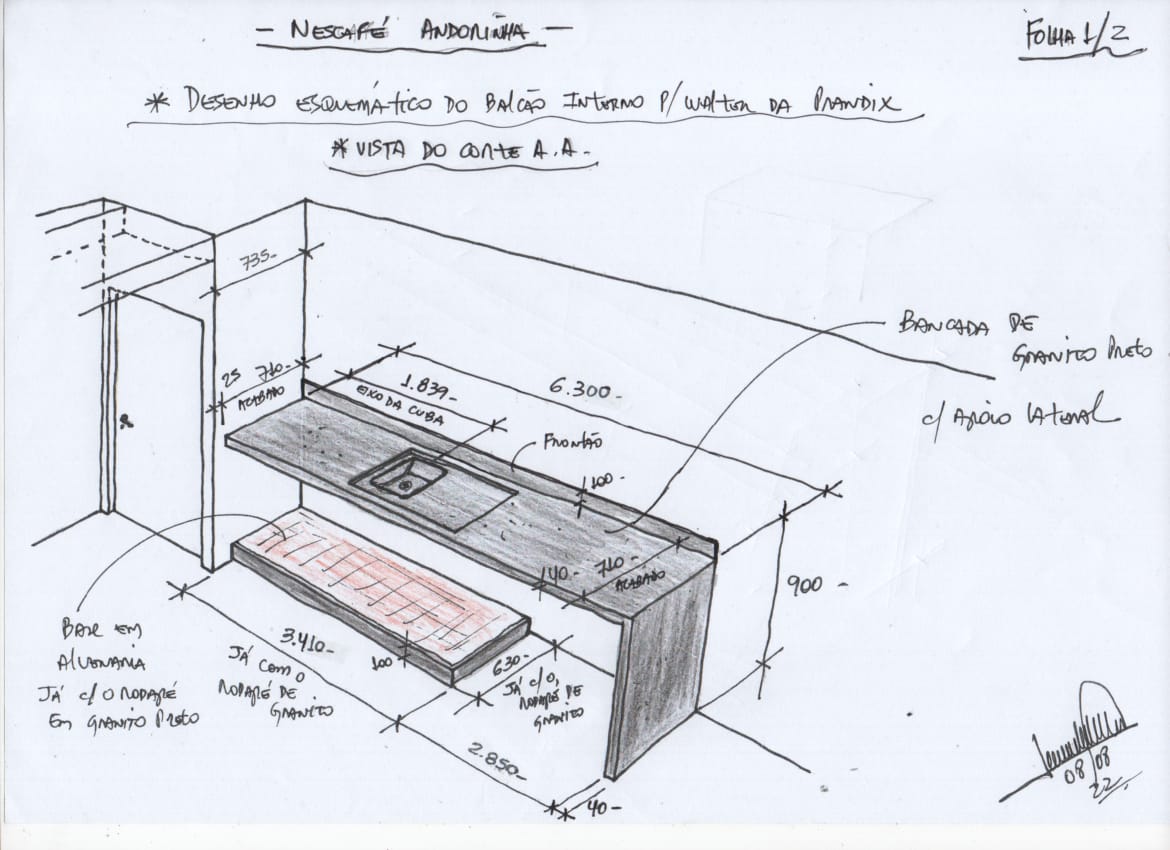 - NESCAFÉ ANDORINHA -
FOLHA 1/2
* DESENHO ESQUEMÁTICO DO BALCÃO INTERNO P/ WALTER DA PRANDIX
* VISTA DO CORTE A.A.
735-
25 710-
ACABADO
1.839-
EIXO DA CUBA
6.300-
FRONTÃO
100-
BANCADA DE
GRANITO PRETO
C/ APOIO LATERAL
40- 710-
ACABADO
900-
BASE EM
ALVENARIA
JÁ C/ O RODAPÉ
EM GRANITO PRETO
3.410-
JÁ COM O
RODAPÉ DE
GRANITO
100
630-
JÁ C/ O
RODAPÉ DE
GRANITO
2.850-
40-
08/08
22